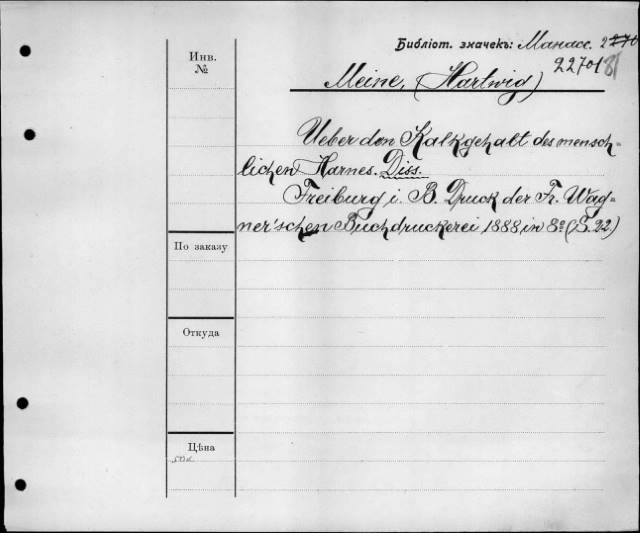 Инв.
№
Библіот. значекъ: Манас.
22701
Meine, (Hartwig)
Ueber den Kalkgehalt des mensch-
lichen Harnes. Diss.
Freiburg i. B. Druck der Fr. Wag-
ner'schen Buchdruckerei 1888, in 8º (S. 22.)
По заказу
Откуда
Цѣна